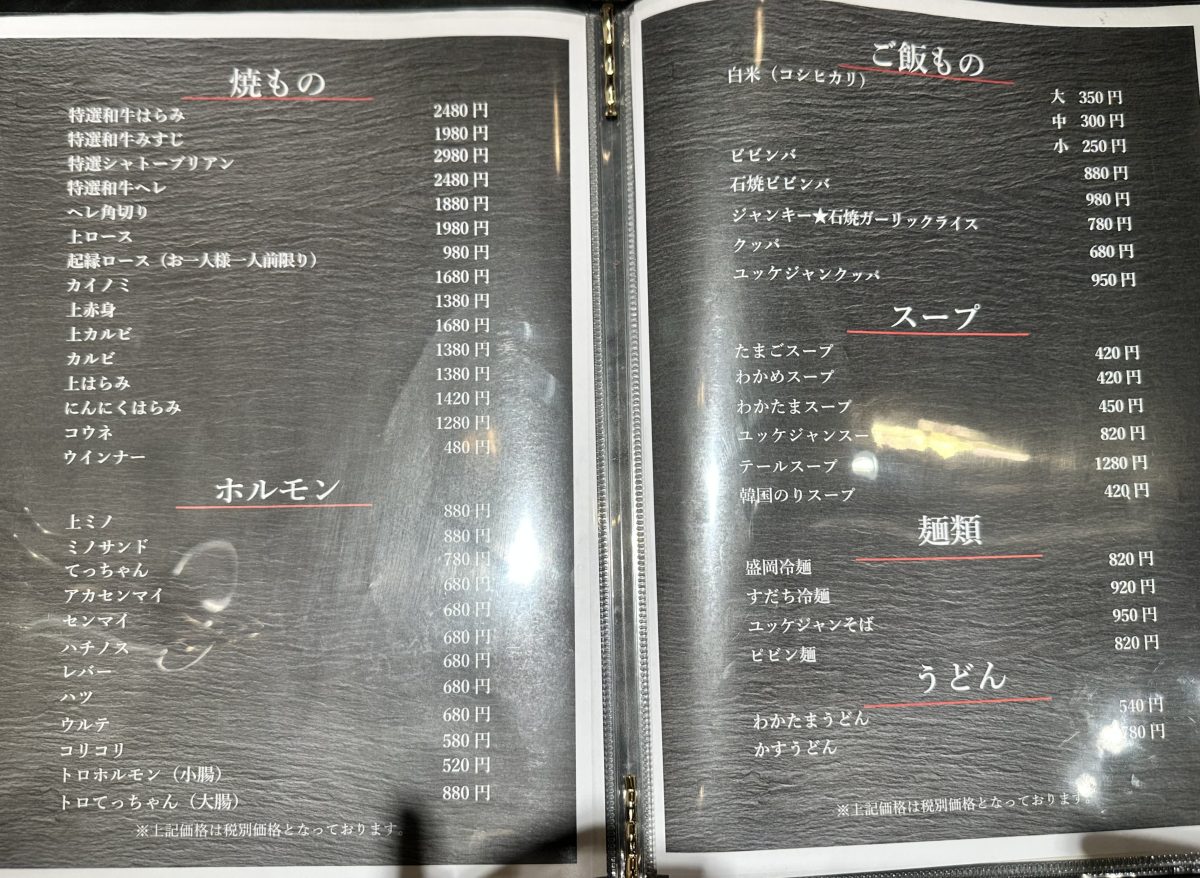 焼もの
特選和牛はらみ 2480円
特選和牛みすじ 1980円
特選シャトーブリアン 2980円
特選和牛ヘレ 2480円
ヘレ角切り 1880円
上ロース 1980円
起縁ロース（お一人様一人前限り） 980円
カイノミ 1680円
上赤身 1380円
上カルビ 1680円
カルビ 1380円
上はらみ 1380円
にんにくはらみ 1420円
コウネ 1280円
ウインナー 480円
ホルモン
上ミノ 880円
ミノサンド 880円
てっちゃん 780円
アカセンマイ 680円
センマイ 680円
ハチノス 680円
レバー 680円
ハツ 680円
ウルテ 680円
コリコリ 580円
トロホルモン（小腸） 520円
トロてっちゃん（大腸） 880円
※上記価格は税別価格となっております。
ご飯もの
白米（コシヒカリ）
大 350円
中 300円
小 250円
ビビンバ 880円
石焼ビビンバ 980円
ジャンキー★石焼ガーリックライス 780円
クッパ 680円
ユッケジャンクッパ 950円
スープ
たまごスープ 420円
わかめスープ 420円
わかたまスープ 450円
ユッケジャンスー 820円
テールスープ 1280円
韓国のりスープ 420円
麺類
盛岡冷麺 820円
すだち冷麺 920円
ユッケジャンそば 950円
ビビン麺 820円
うどん
わかたまうどん 540円
かすうどん 780円
※上記価格は税別価格となっております。